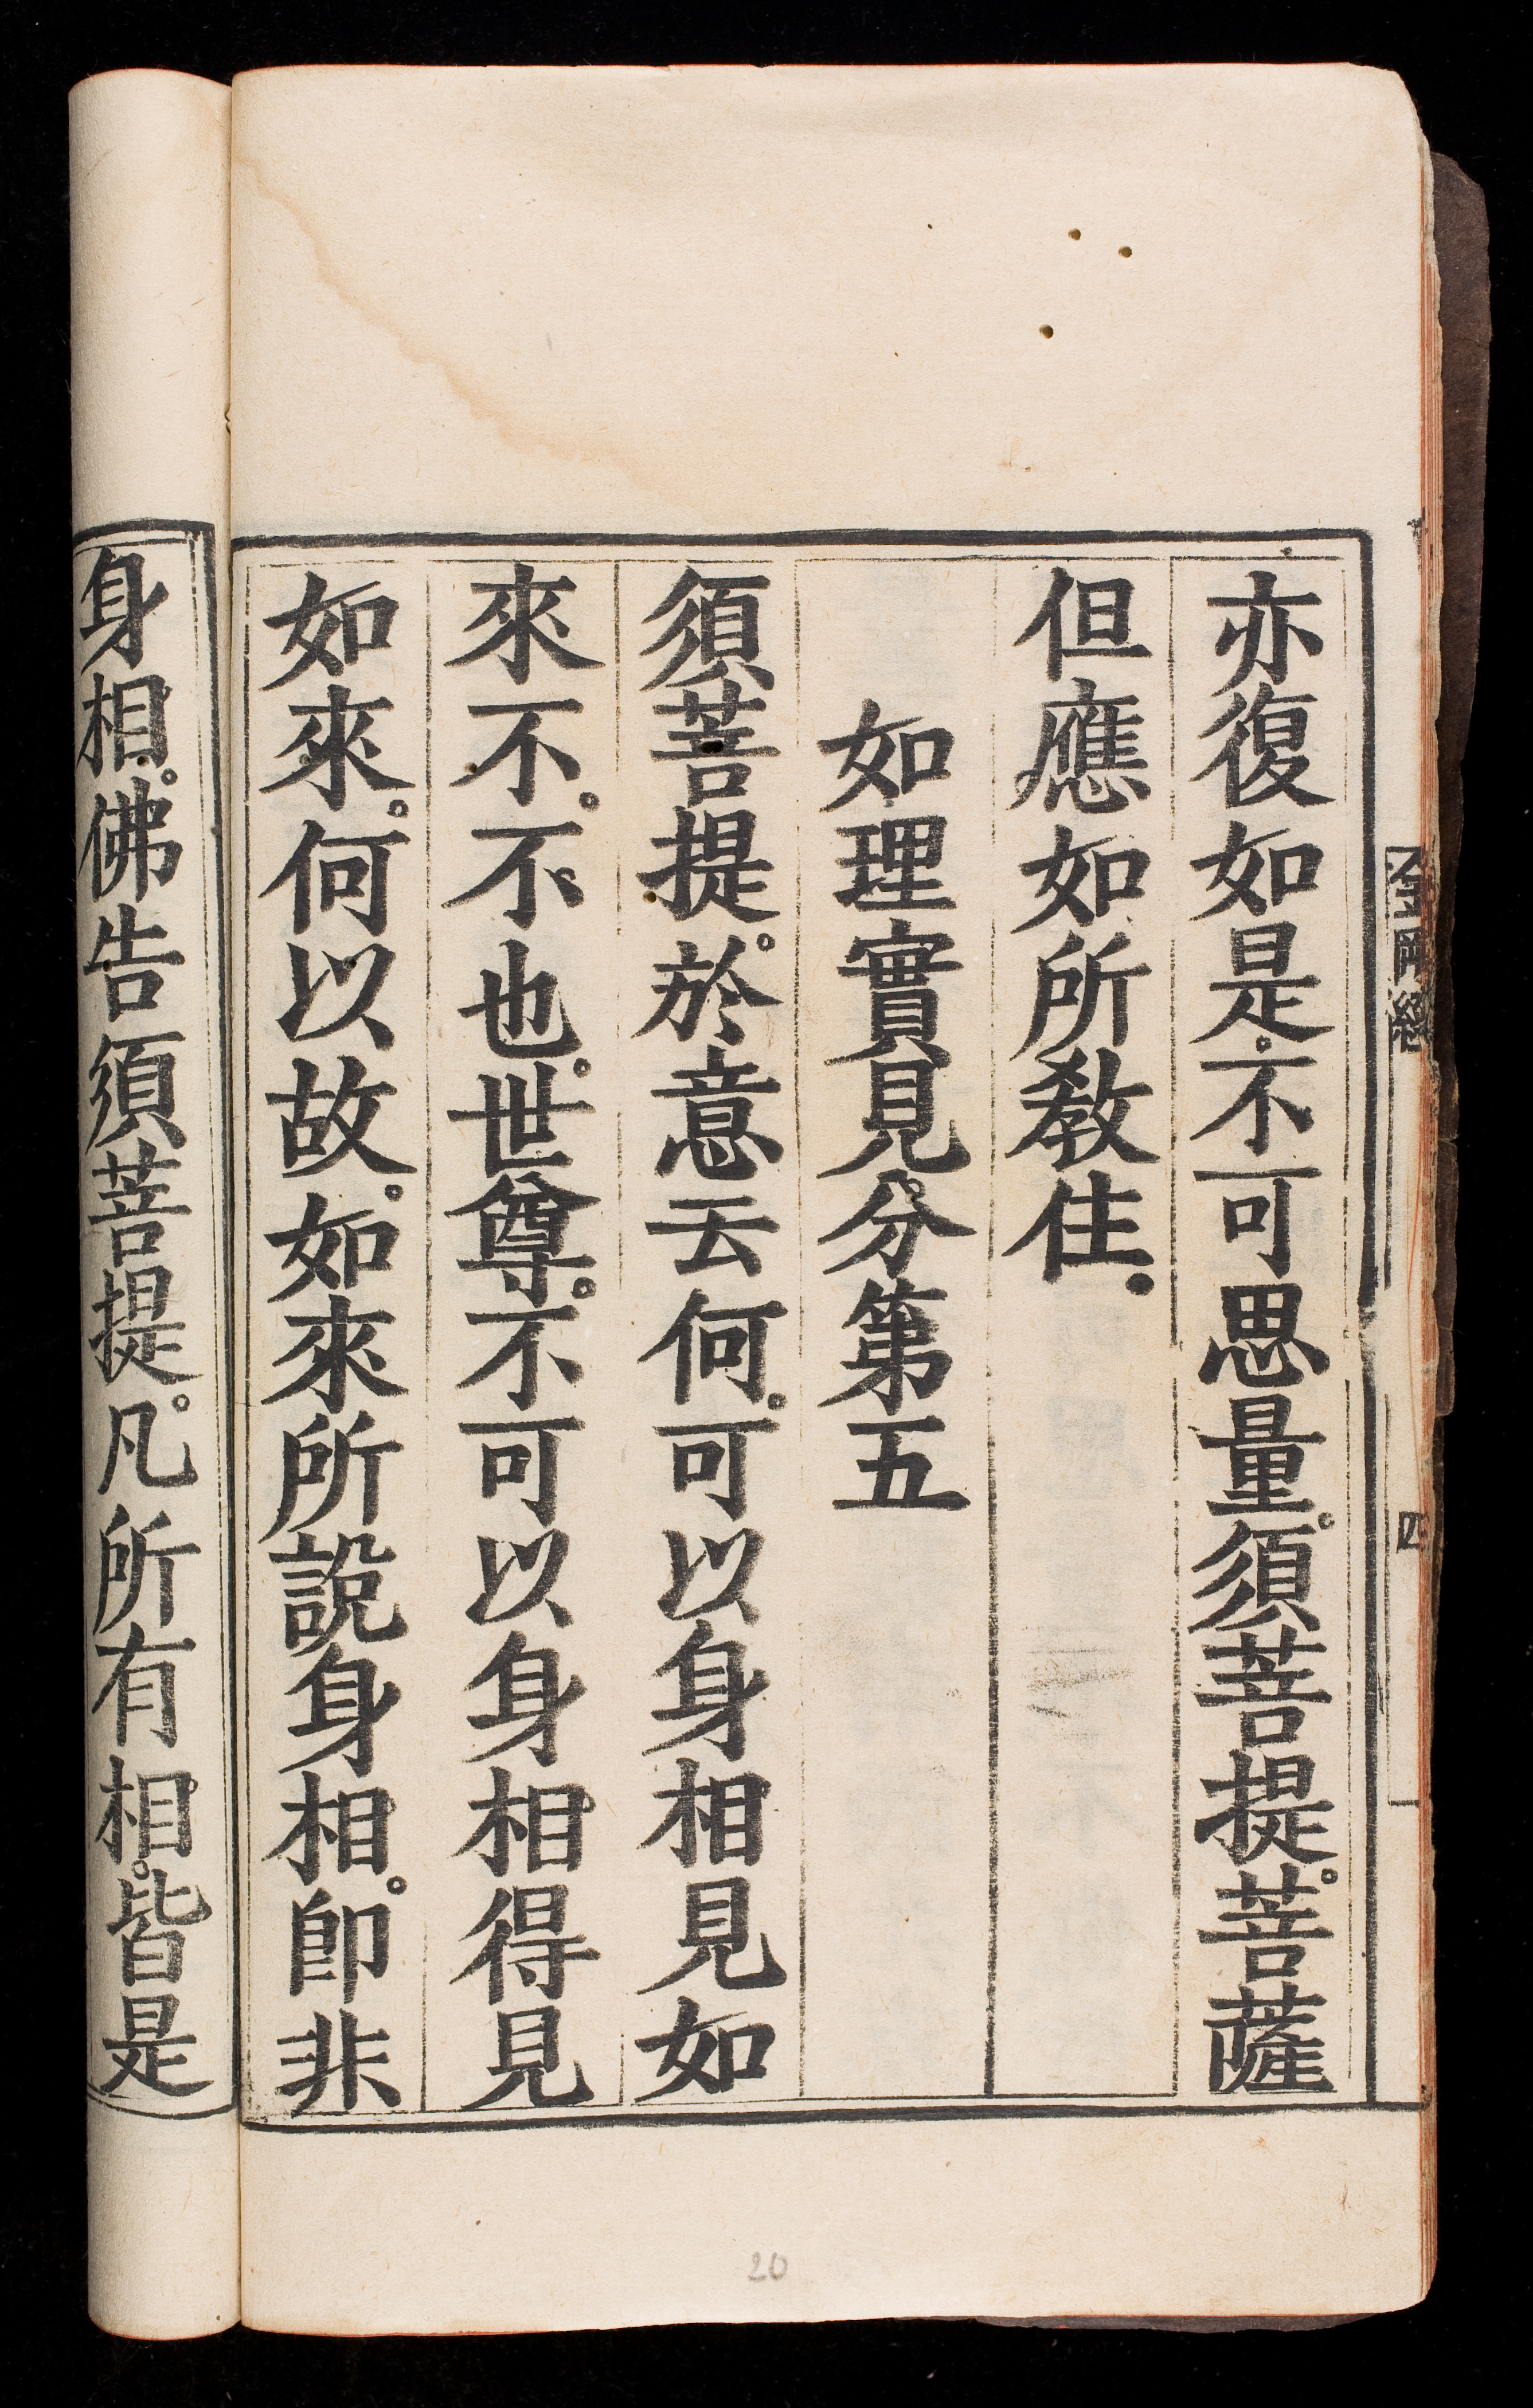 亦復如是。不可思量。須菩提。菩薩
但應如所教住。
如理實見分第五
須菩提。於意云何。可以身相見如
來不。不也。世尊。不可以身相得見
如來。何以故。如來所說身相。即非
身相。佛告須菩提。凡所有相。皆是
金剛經
四
20